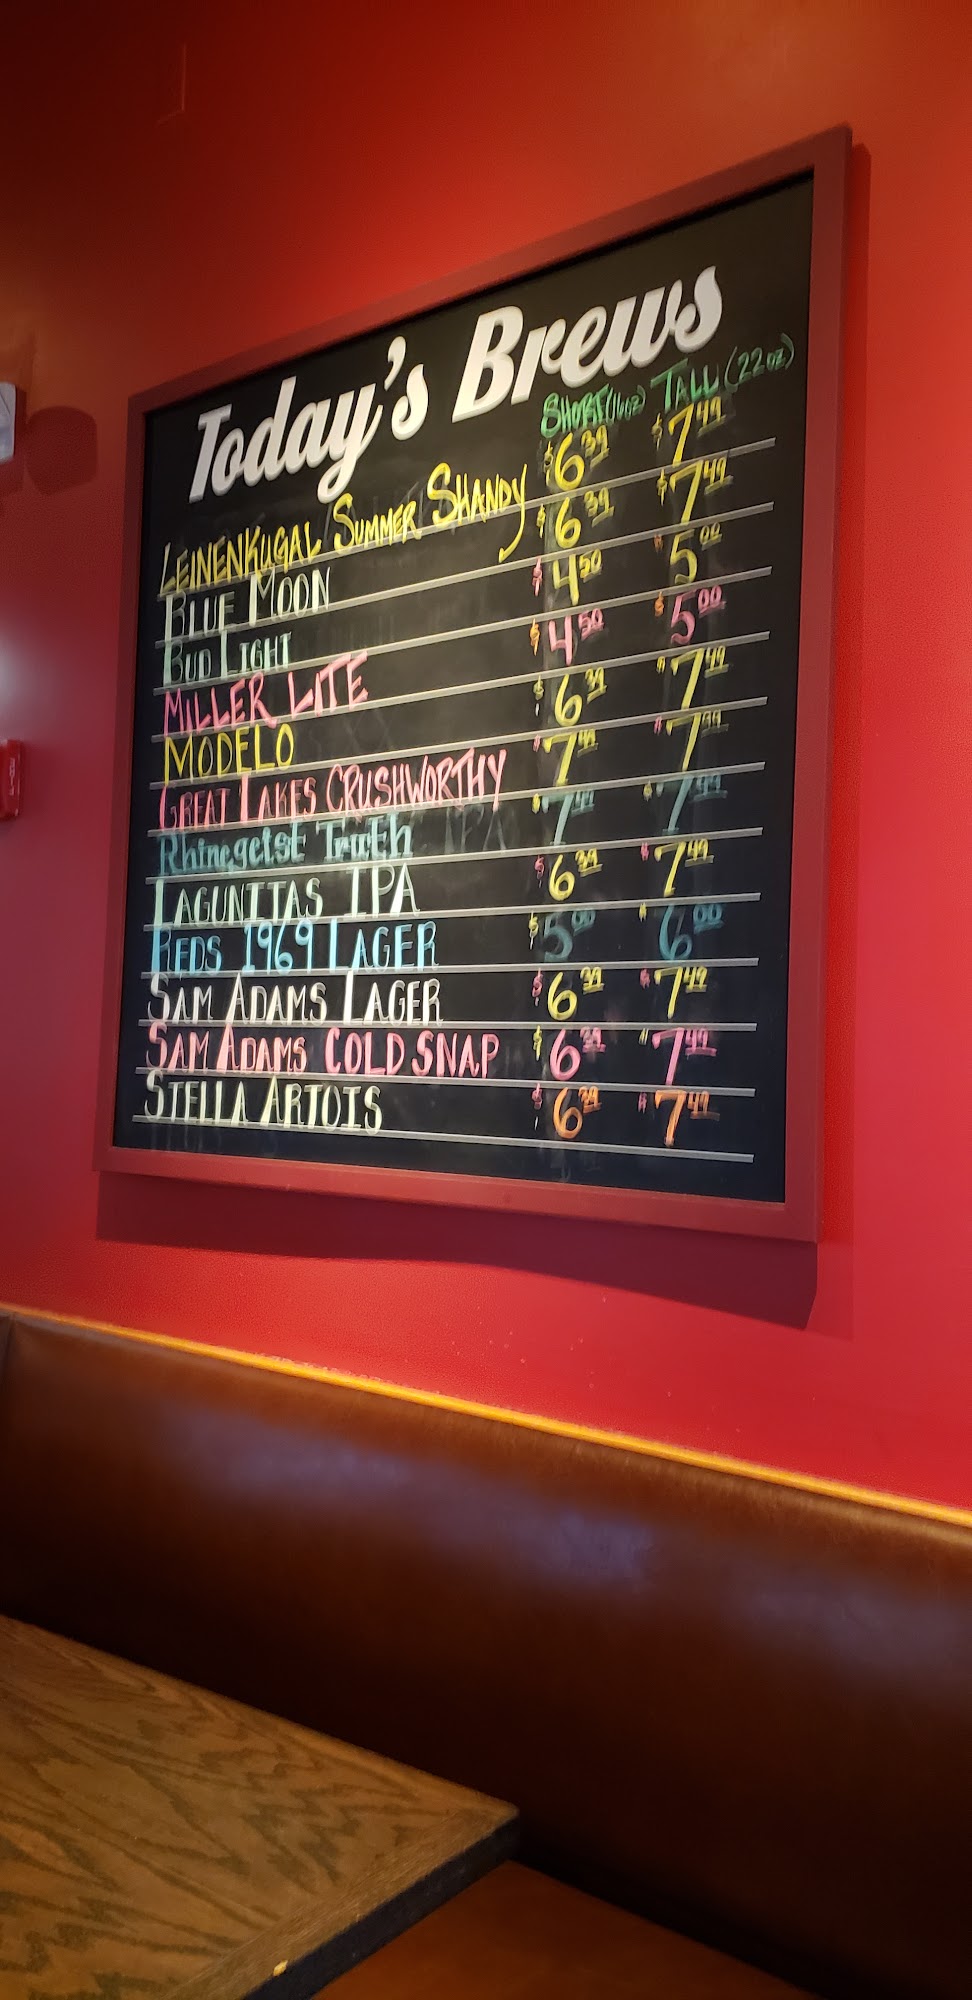 Today's Brews
SHORT(16oz) TALL (22oz)
LEINENKUGAL SUMMER SHANDY $6.39 $7.49
BLUE MOON $6.39 $7.49
BUD LIGHT $4.50 $5.00
MILLER LITE $4.50 $5.00
MODELO $6.39 $7.49
GREAT LAKES CRUSHWORTHY
Rhinegeist Truth
LAGUNITAS IPA $6.39 $7.49
REDS 1969 LAGER $5.00 $6.00
SAM ADAMS LAGER $6.39 $7.49
SAM ADAMS COLD SNAP $6.39 $7.49
STELLA ARTOIS $6.39 $7.49